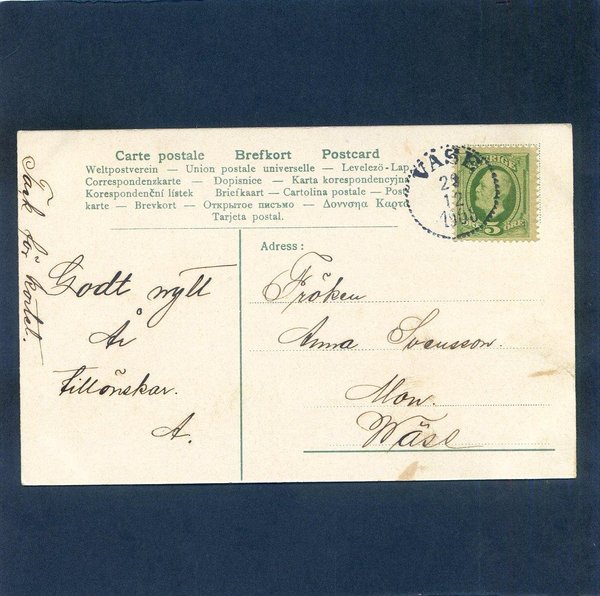 Carte postale Brefkort Postcard
Weltpostverein — Union postale universelle — Levelezö-Lap
Correspondenzkarte — Dopisnice — Karta korespondencyjna
Korespondenční lístek Briefkaart — Cartolina postale — Post
karte — Brevkort — Открытое письмо — Δουνσηα Καρτα
Tarjeta postal.
VÄSE
29
12
SVERIGE
5 ÖRE
Adress:
Tack för kortet.
Godt nytt
År
tillönskar.
A.
Fröken
Anna Svensson.
Mon.
Wäse